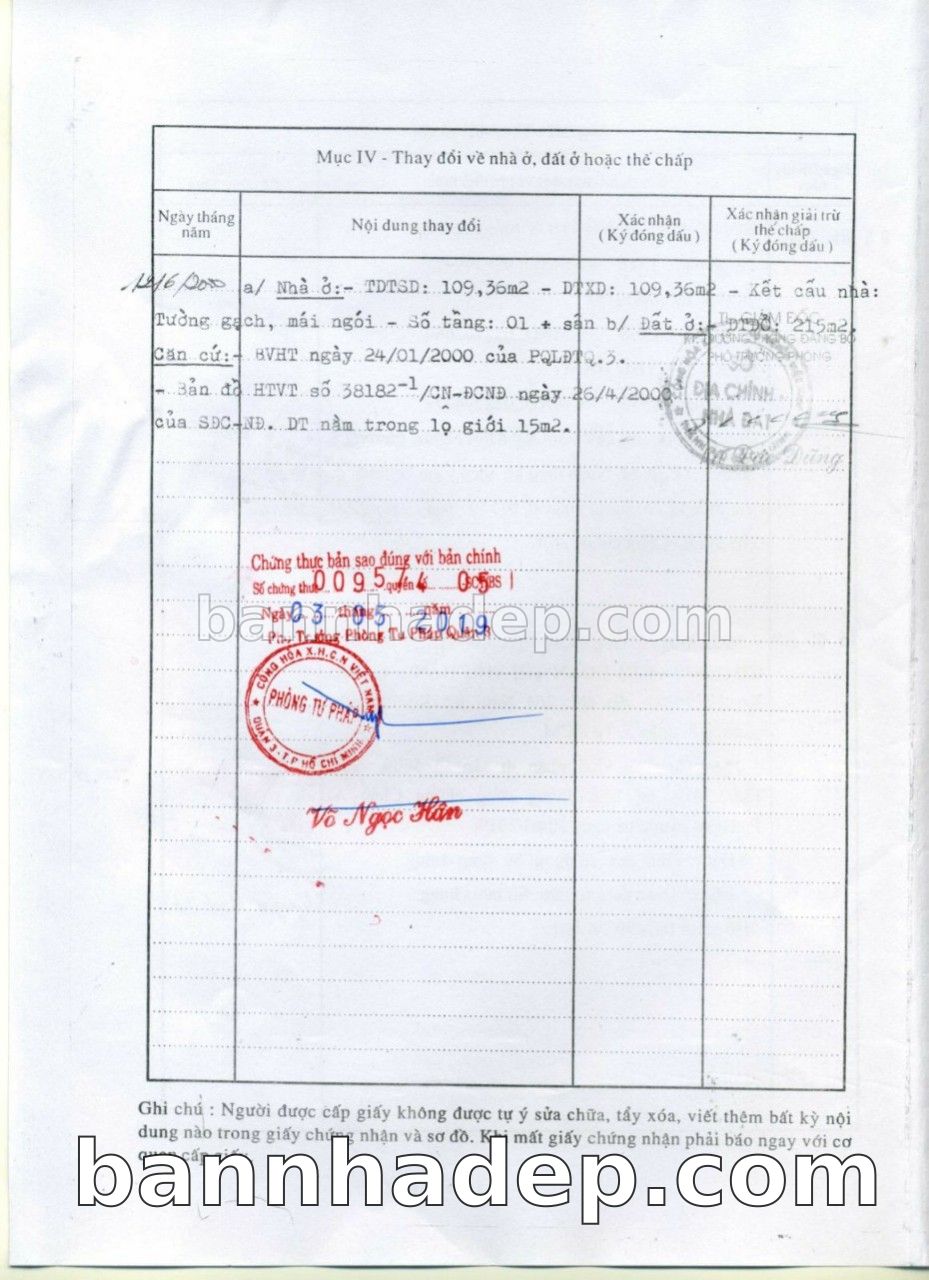 Mục IV - Thay đổi về nhà ở, đất ở hoặc thế chấp
Ngày tháng năm
Nội dung thay đổi
Xác nhận
( Ký đóng dấu )
Xác nhận giải trừ
thế chấp
( Ký đóng dấu )
a/ Nhà ở:- TDTSD: 109,36m2 - DTXD: 109,36m2 - Kết cấu nhà:
Tường gạch, mái ngói - Số tầng: 01 + sân b/ Đất ở:- DTĐỞ: 215m2.
Căn cứ:- BVHT ngày 24/01/2000 của PQLĐTQ.3.
- Bản đồ HTVT số 38182-1/CN-ĐCNĐ ngày 26/4/2000
của SĐC-NĐ. DT nằm trong lộ giới 15m2.
TL GIÁM ĐỐC
PHÓ TRƯỞNG PHÒNG
SỞ
ĐỊA CHÍNH
NHÀ ĐẤT
Dũng
Chứng thực bản sao đúng với bản chính
Số chứng thực 009574 quyển 05
Ngày 03 tháng 05 năm 2019
Trưởng Phòng Tư Pháp Quận 3
CỘNG HÒA X.H.C.N VIỆT NAM
PHÒNG TƯ PHÁP
QUẬN 3 - T.P HỒ CHÍ MINH
Võ Ngọc Hân
bannhadep.com
Ghi chú : Người được cấp giấy không được tự ý sửa chữa, tẩy xóa, viết thêm bất kỳ nội
dung nào trong giấy chứng nhận và sơ đồ. Khi mất giấy chứng nhận phải báo ngay với cơ
quan cấp giấy.
bannhadep.com